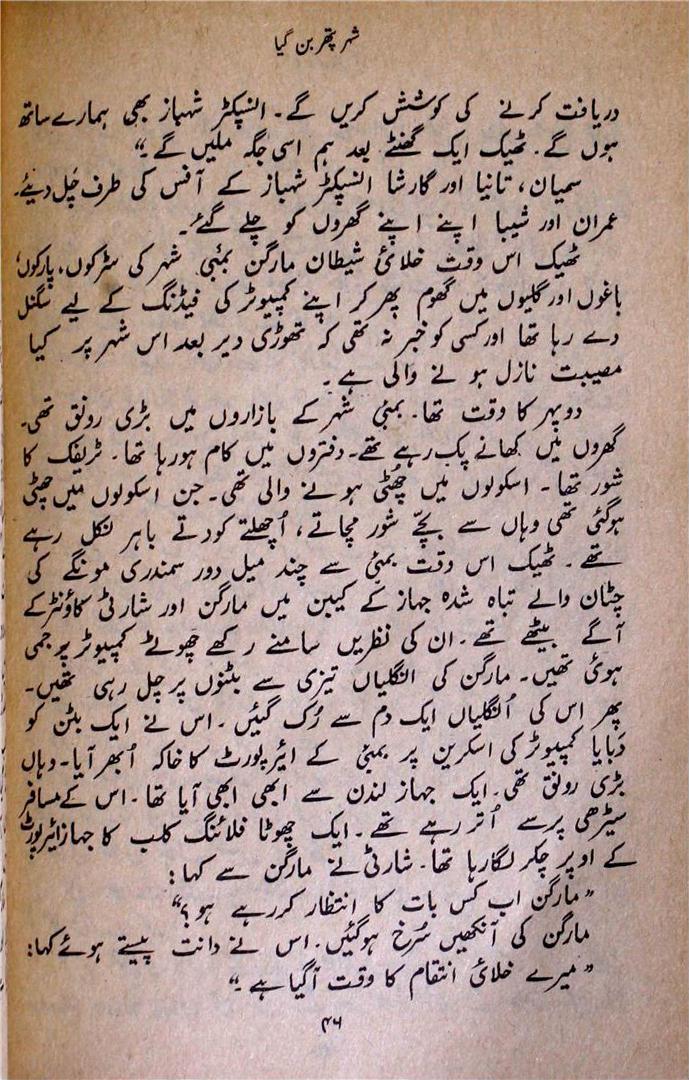 شہر پتھر بن گیا
دریافت کرنے کی کوشش کریں گے۔ انسپکٹر شہباز بھی ہمارے ساتھ
ہوں گے۔ ٹھیک ایک گھنٹے بعد ہم اسی جگہ ملیں گے۔“
سمیان، تانیا اور گارشا انسپکٹر شہباز کے آفس کی طرف چل دیئے۔
عمران اور شیبا اپنے اپنے گھروں کو چلے گئے۔
ٹھیک اس وقت خلائی شیطان مارگن بمبئی شہر کی سڑکوں، پارکوں،
باغوں اور گلیوں میں گھوم پھر کر اپنے کمپیوٹر کی فیڈنگ کے لیے سگنل
دے رہا تھا اور کسی کو خبر نہ تھی کہ تھوڑی دیر بعد اس شہر پر کیا
مصیبت نازل ہونے والی ہے۔
دوپہر کا وقت تھا۔ بمبئی شہر کے بازاروں میں بڑی رونق تھی۔
گھروں میں کھانے پک رہے تھے۔ دفتروں میں کام ہو رہا تھا۔ ٹریفک کا
شور تھا۔ اسکولوں میں چھٹی ہونے والی تھی۔ جن اسکولوں میں چھٹی
ہوگئی تھی وہاں سے بچّے شور مچاتے، اُچھلتے کودتے باہر نکل رہے
تھے۔ ٹھیک اس وقت بمبئی سے چند میل دور سمندری مونگے کی
چٹان والے تباہ شدہ جہاز کے کیبن میں مارگن اور شارٹی کاؤنٹر کے
آگے بیٹھے تھے۔ ان کی نظریں سامنے رکھے چھوٹے کمپیوٹر پر جمی
ہوئی تھیں۔ مارگن کی انگلیاں تیزی سے بٹنوں پر چل رہی تھیں۔
پھر اس کی اُنگلیاں ایک دم سے رُک گئیں۔ اس نے ایک بٹن کو
دَبایا کمپیوٹر کی اسکرین پر بمبئی کے ایئرپورٹ کا خاکہ اُبھر آیا۔ وہاں
بڑی رونق تھی۔ ایک جہاز لندن سے ابھی ابھی آیا تھا۔ اس کے مسافر
سیڑھی پر سے اُتر رہے تھے۔ ایک چھوٹا فلائنگ کلب کا جہاز ائیرپورٹ
کے اوپر چکر لگا رہا تھا۔ شارٹی نے مارگن سے کہا:
”مارگن اب کس بات کا انتظار کر رہے ہو؟“
مارگن کی آنکھیں سُرخ ہوگئیں۔ اس نے دانت پیستے ہوئے کہا:
”میرے خلائی انتقام کا وقت آگیا ہے۔“
۴۶